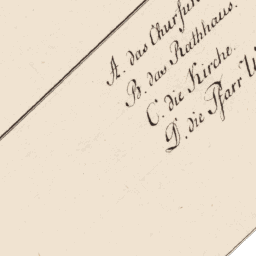 A. das Churfür
B. das Rathhaus.
C. die Kirche.
D. die Pfarr W